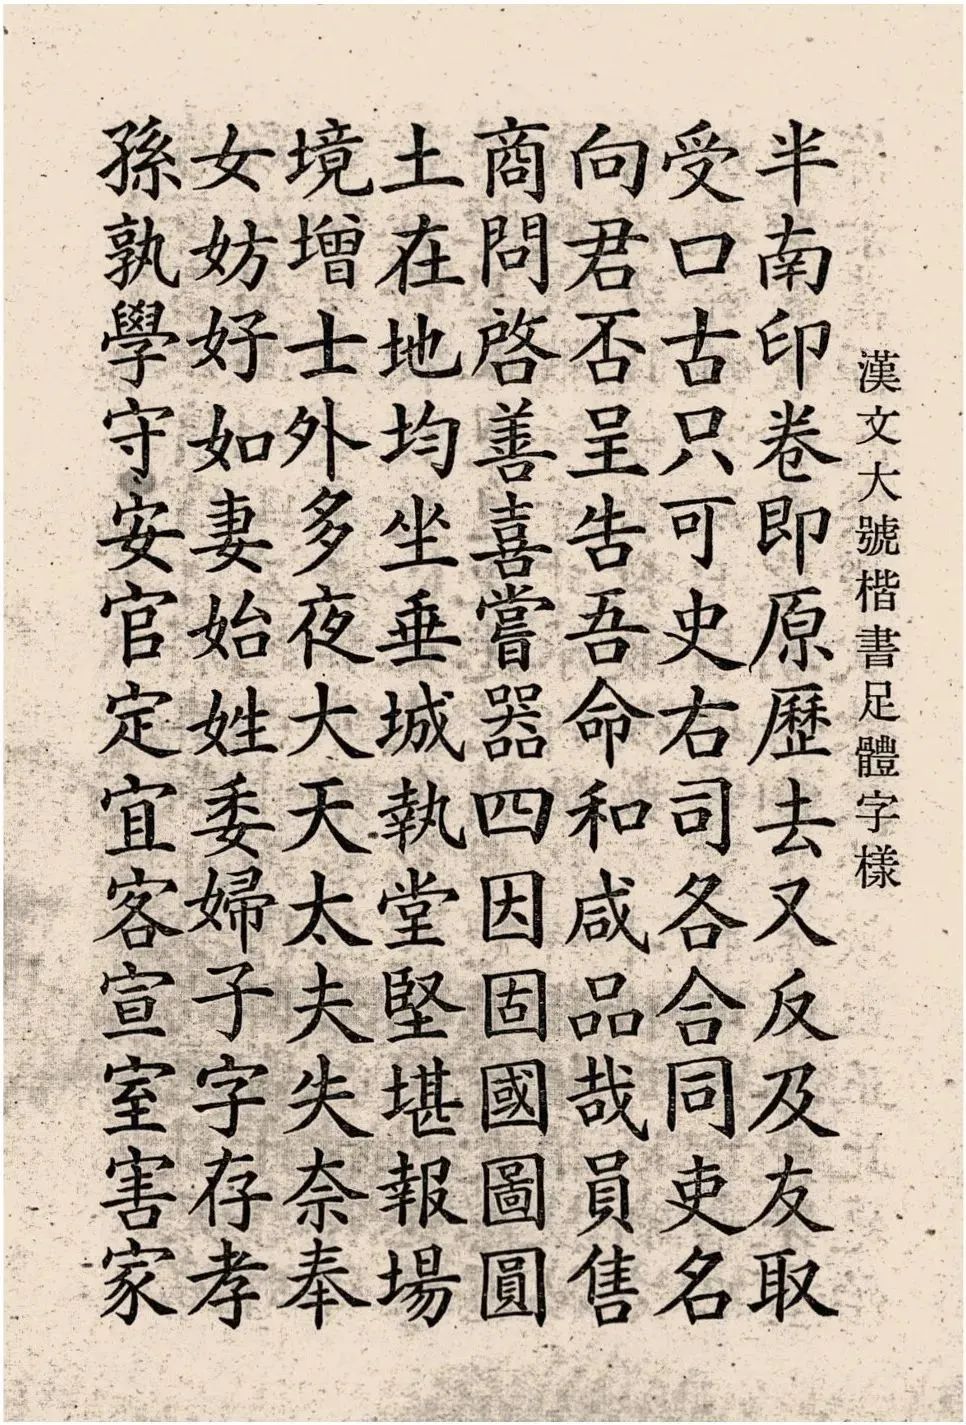 漢文大號楷書足體字樣
半南印卷即原歷去又反及友取
受口古只可史右司各合同吏名
向君否呈告吾命和咸品哉員售
商問啓善喜嘗器四因固國圖圓
土在地均坐垂城執堂堅堪報場
境增士外多夜大天太夫失奈奉
女妨好如妻始姓委婦子字存孝
孫孰學守安官定宜客宣室害家